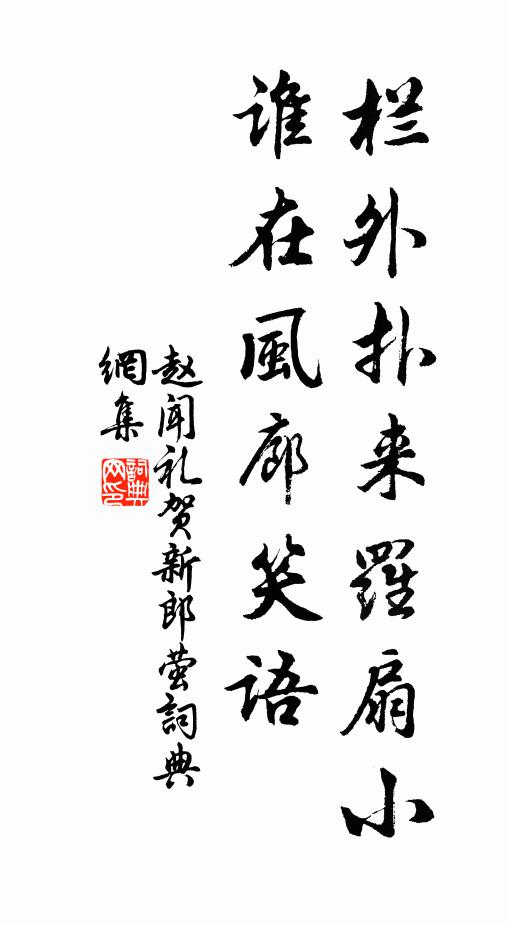 栏外扑来罗扇小
谁在風廊笑语
赵闻礼贺新郎萤詞典
網集
詞典
网印